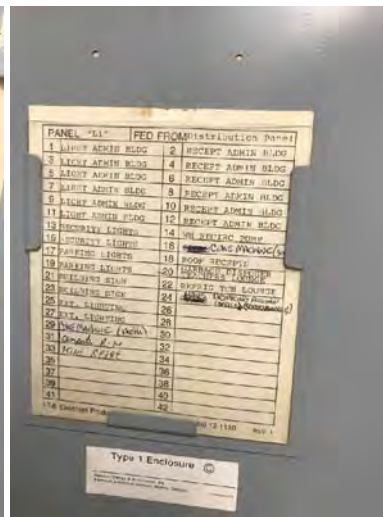 PANEL "L1" FED FROM Distribution Panel
1 LIGHT ADMIN BLDG 2 RECEPT ADMIN BLDG
3 LIGHT ADMIN BLDG 4 RECEPT ADMIN BLDG
5 LIGHT ADMIN BLDG 6 RECEPT ADMIN BLDG
7 LIGHT ADMIN BLDG 8 RECEPT ADMIN BLDG
9 LIGHT ADMIN BLDG 10 RECEPT ADMIN BLDG
11 LIGHT ADMIN BLDG 12 RECEPT ADMIN BLDG
13 SECURITY LIGHTS 14 HW RECIRC PUMP
15 SECURITY LIGHTS 16 COKE MACHINE
17 PARKING LIGHTS 18 ROOF RECEPTS
19 PARKING LIGHTS 20 GARBAGE DISPOSER
21 BUILDING SIGN 22 REFRIG TCH LOUNGE
23 BUILDING SIGN 24
25 EXT. LIGHTING 26
27 EXT. LIGHTING 28
29 COKE MACHINE 30
31 32
33 34
35 36
37 38
39 40
41 42
Type 1 Enclosure